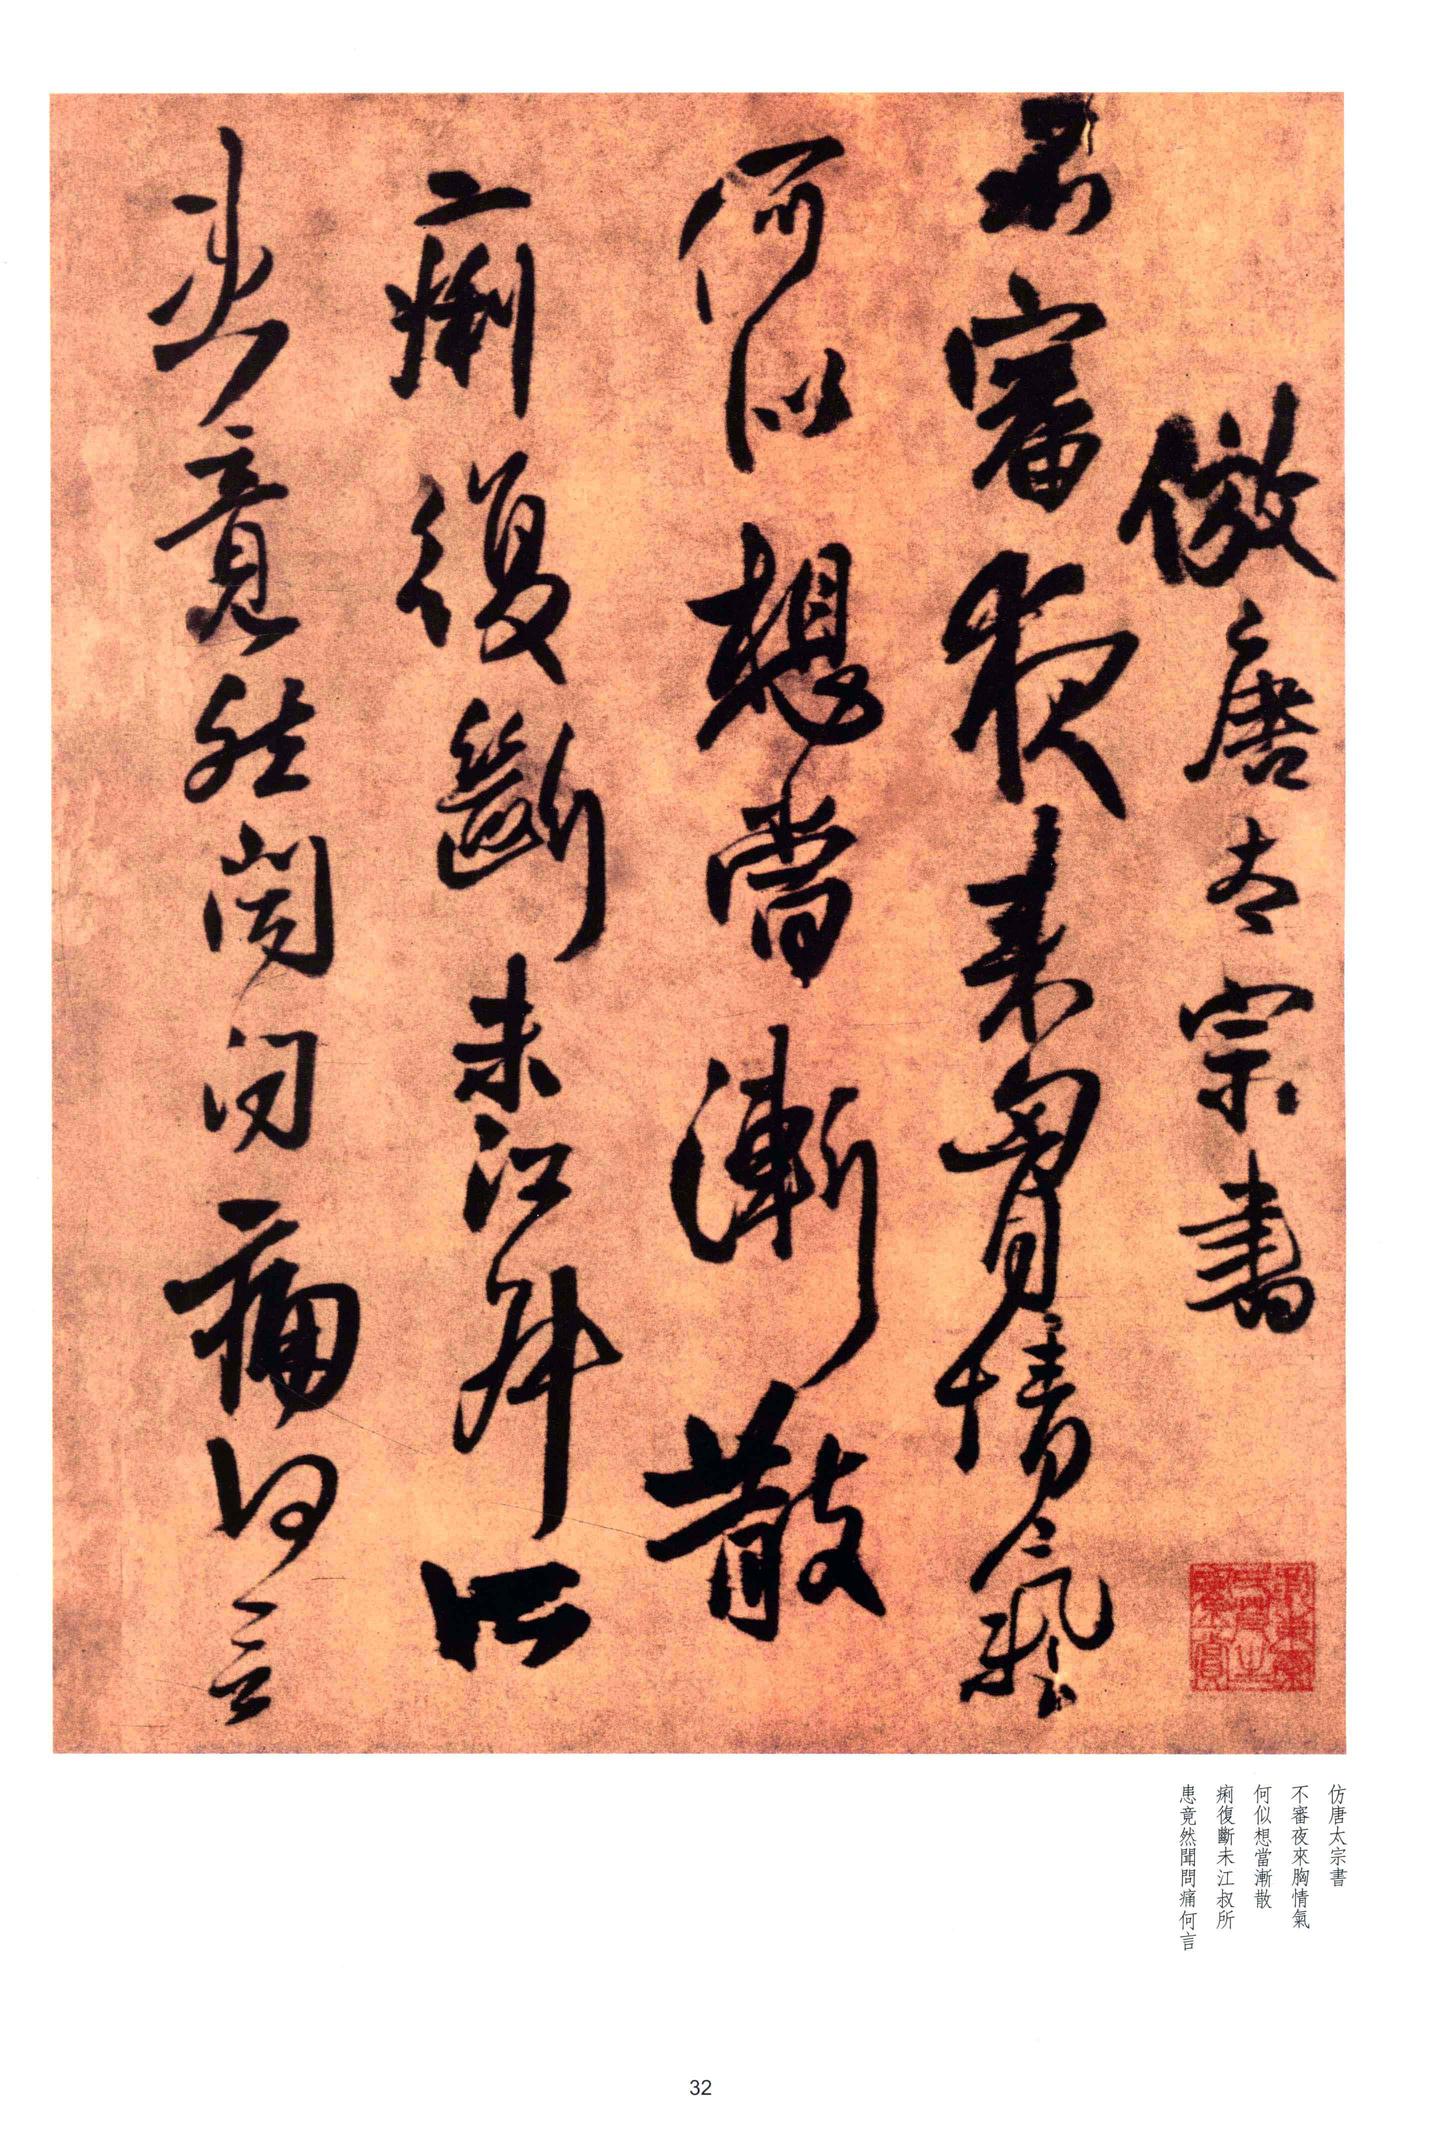 倣唐太宗書
不審夜来胷情氣
何似想當漸散
痢復斷未江叔所
患竟然聞問痛何言
仿唐太宗書
不審夜來胸情氣
何似想當漸散
痢復斷未江叔所
患竟然聞問痛何言
32